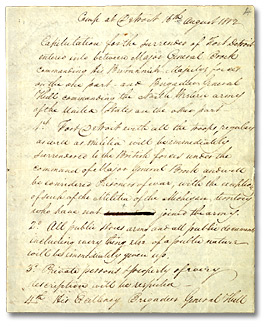 Camp at Detroit 16th August 1812
Capitulation for the surrender of Fort Detroit
entered into between Major General Brock
commanding his Britannick Majestys forces
on the one part, and Brigadier General
Hull commanding the North Western army
of the United States on the other part
1st Fort Detroit with all the troops regulars
as well as militia will be immediately
surrendered to the British forces under the
command of Major General Brock and will
be considered Prisoners of war, with the exception
of such of the Militia of the Michigan territory
who have not joined the army.
2d All public stores arms and all public documents
including every thing else of a public nature
will be immediately given up.
3d Private persons & property of every
description will be respected.
4th His Excellency Brigadier General Hull